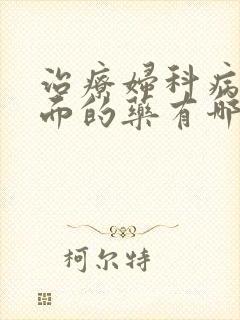 治療婦科病
而的藥有哪
柯尔特